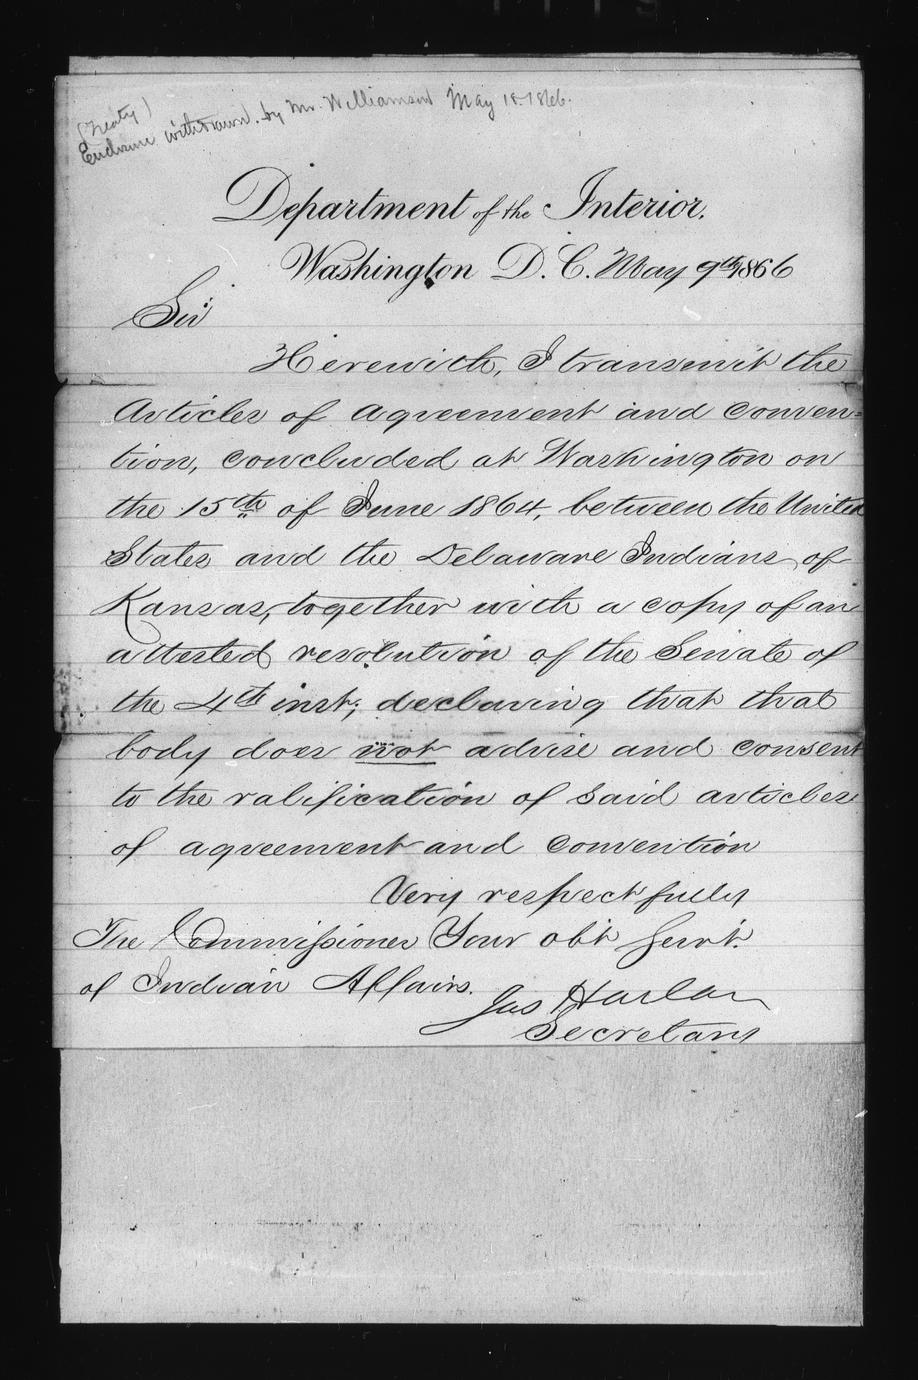 (Treaty)
Enclosure withdrawn. by Mr. Williamson May 18-1866.
Department of the Interior.
Washington D. C. May 9th 1866
Sir
Herewith, I transmit the
Articles of agreement and conven=
tion, concluded at Washington on
the 15th of June 1864, between the United
States and the Delaware Indians of
Kansas, together with a copy of an
attested resolution of the Senate of
the 4th inst; declaring that that
body does not advise and consent
to the ratification of said articles
of agreement and convention
Very respectfully
The Commissioner Your obt Servt.
of Indian Affairs.
Jas Harlan
Secretary